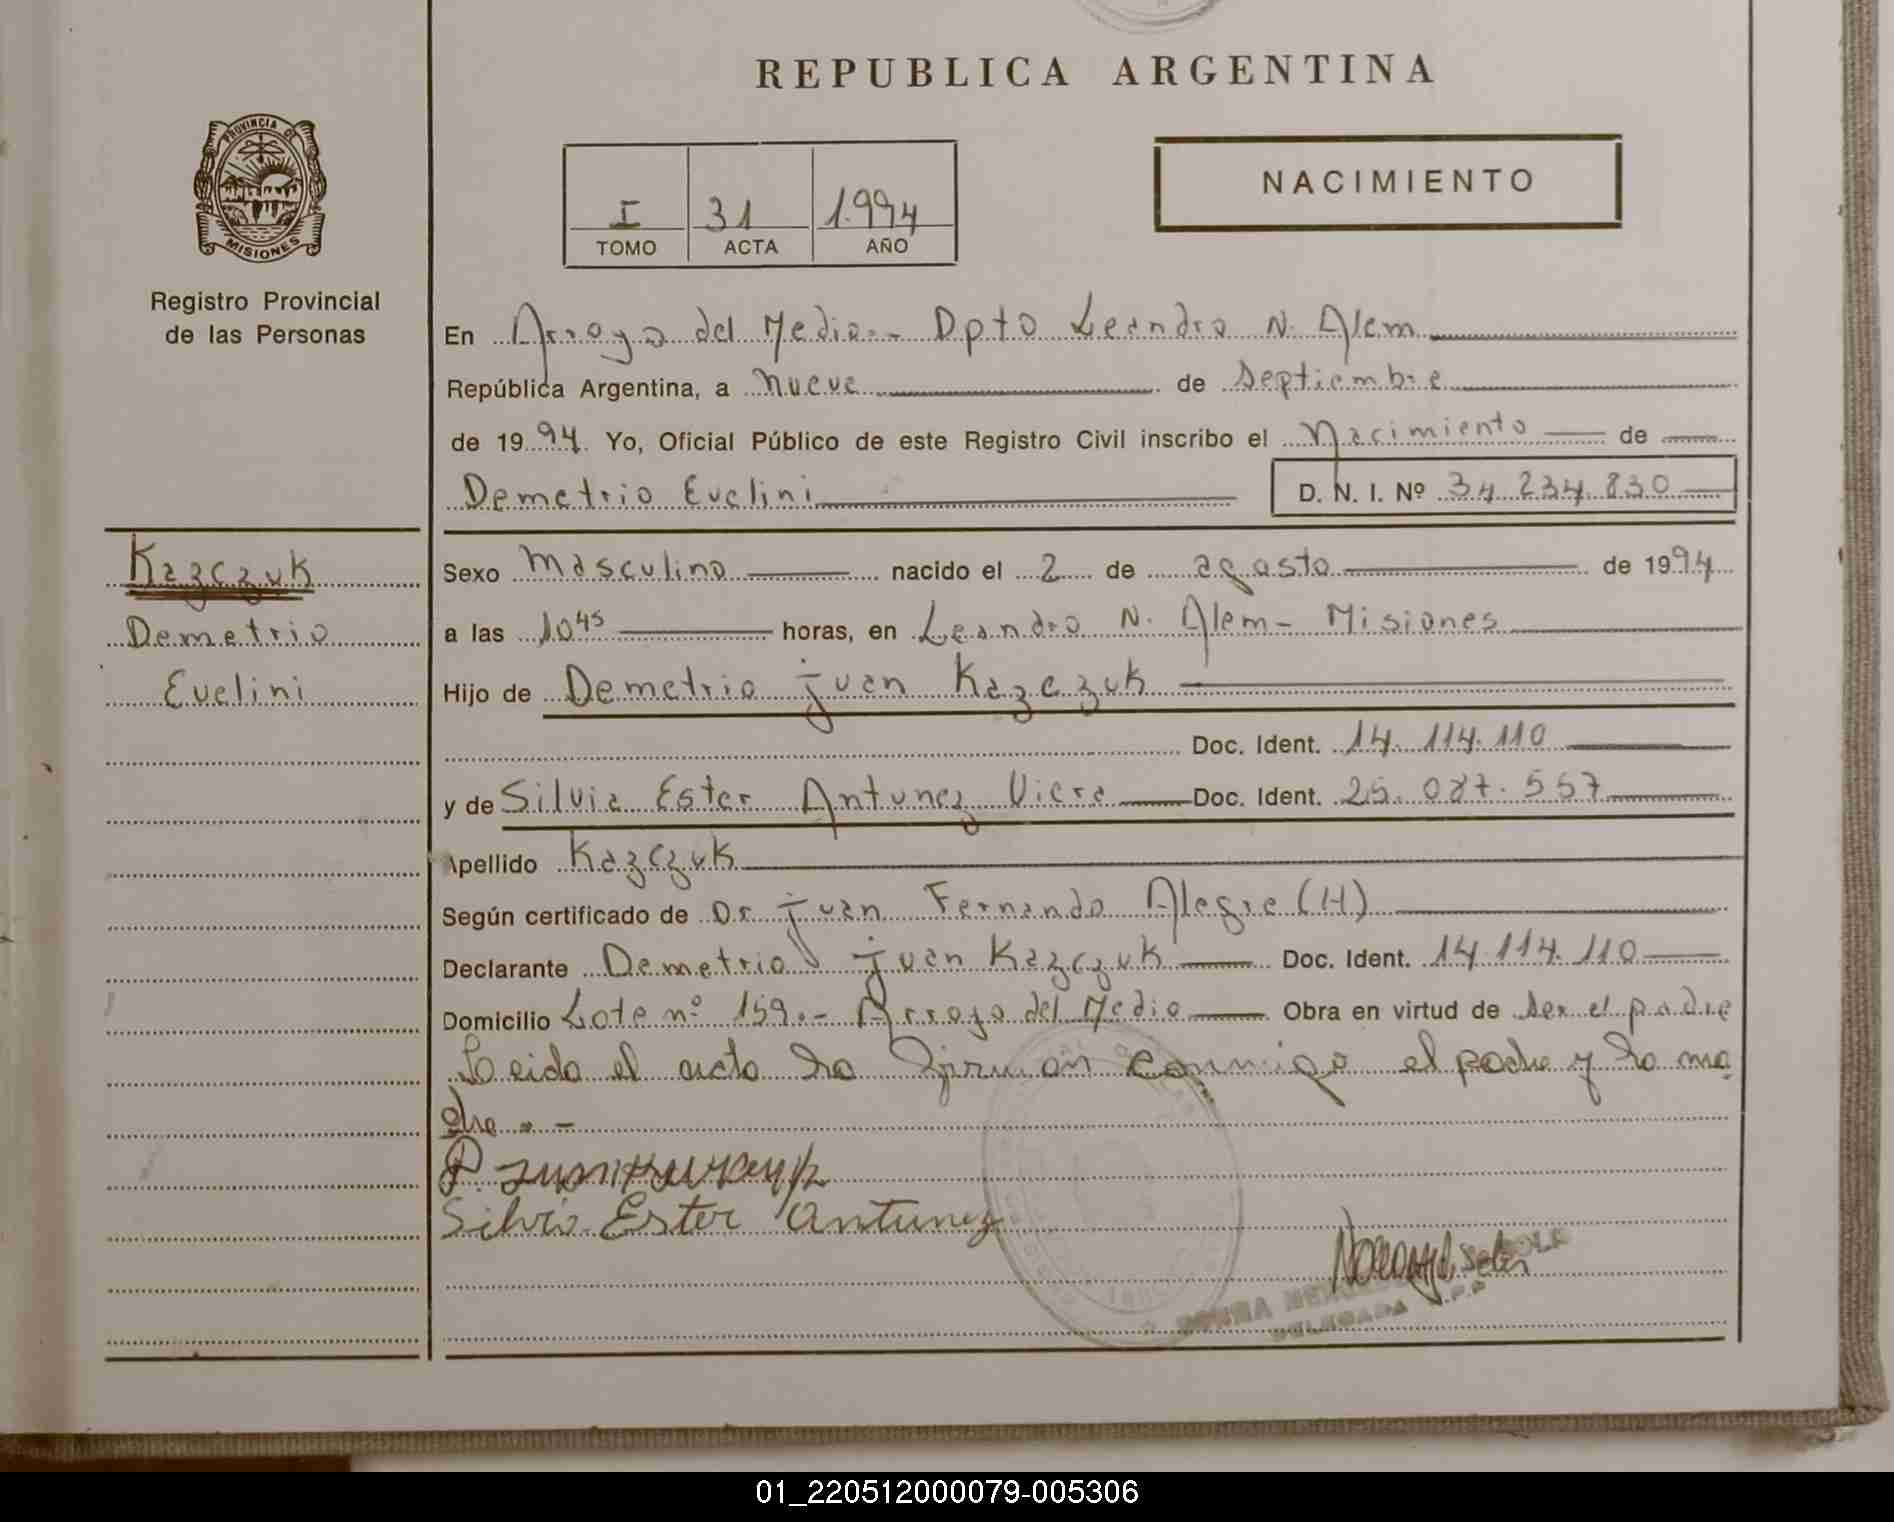 REPUBLICA ARGENTINA
PROVINCIA DE
MISIONES
Registro Provincial
de las Personas
I 31 1.994
TOMO ACTA AÑO
NACIMIENTO
En Arroyo del Medio.- Dpto Leandro N. Alem
República Argentina, a nueve de Septiembre
de 1994. Yo, Oficial Público de este Registro Civil inscribo el Nacimiento de
Demetrio Evelini D. N. I. Nº 34.234.830
Kazczuk
Demetrio
Evelini
Sexo Masculino nacido el 2 de agosto de 1994
a las 10 45 horas, en Leandro N. Alem - Misiones
Hijo de Demetrio juan Kazczuk
Doc. Ident. 14.114.110
y de Silvia Ester Antunez Viera Doc. Ident. 25.087.557
Apellido Kazczuk
Según certificado de Dr juan Fernando Alegre (H)
Declarante Demetrio juan Kazczuk Doc. Ident. 14.114.110
Domicilio Lote nº 159.- Arroyo del Medio Obra en virtud de ser el padre
Leida el acta la firman conmigo el padre y la ma
dre.-
Silvia Ester Antunez
DELEGADA R.P.P
01_220512000079-005306